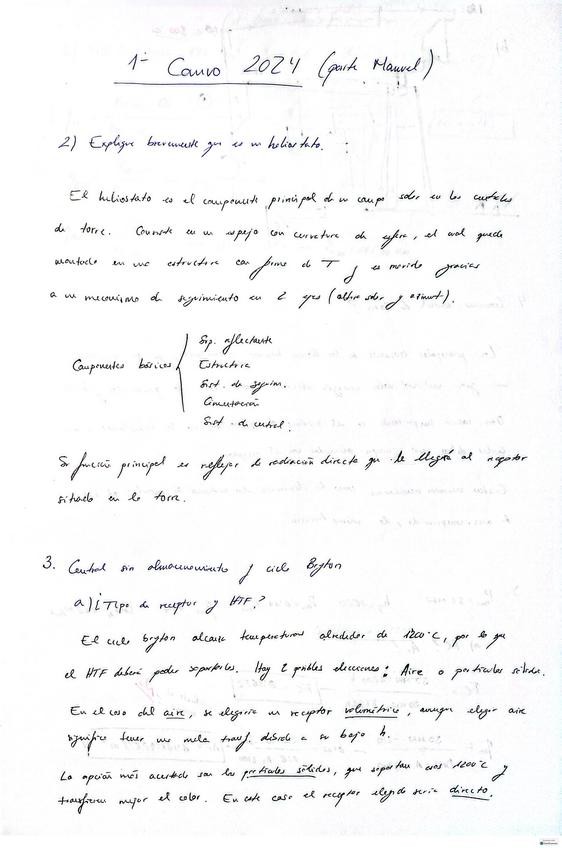 1ª Convo 2024 (parte Manuel)
2) Explique brevemente que es un heliostato.
El heliostato es el componente principal de un campo solar en las centrales
de torre. Consiste en un espejo con curvatura de esfera, el cual queda
montado en una estructura con forma de T y es movido gracias
a un mecanismo de seguimiento en 2 ejes (altura solar y azimut).
Componentes básicos
Sup. reflectante
Estructura
Sist. de seguim.
Cimentación
Sist. de control.
Su función principal es reflejar la radiación directa que le llegará al receptor
situado en la torre.
3. Central sin almacenamiento y ciclo Bryton
a) ¿Tipo de receptor y HTF?
El ciclo Bryton alcanza temperaturas alrededor de 1200°C, por lo que
el HTF deberá poder soportarlas. Hay 2 posibles elecciones: Aire o partículas sólidas.
En el caso del aire, se elegiría un receptor volumétrico, aunque elegir aire
significa tener una mala transf. debido a su bajo h.
La opción más acertada son las partículas sólidas, que soportan esos 1200°C y
transfieren mejor el calor. En este caso el receptor elegido sería directo.